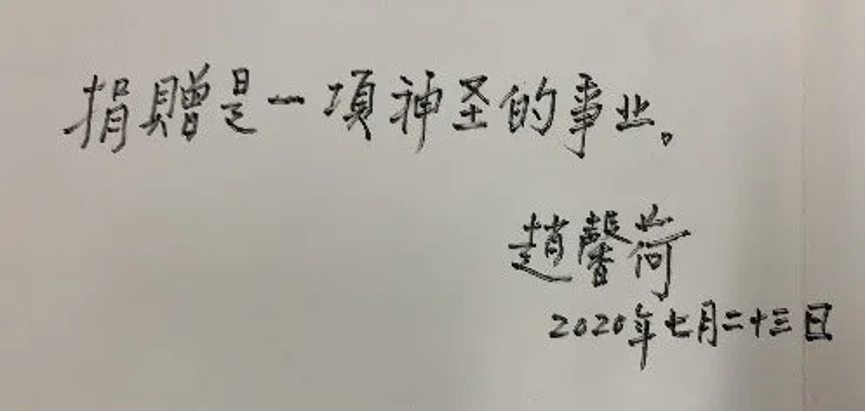 捐贈是一項神圣的事业。
趙馨荷
2020年七月二十三日